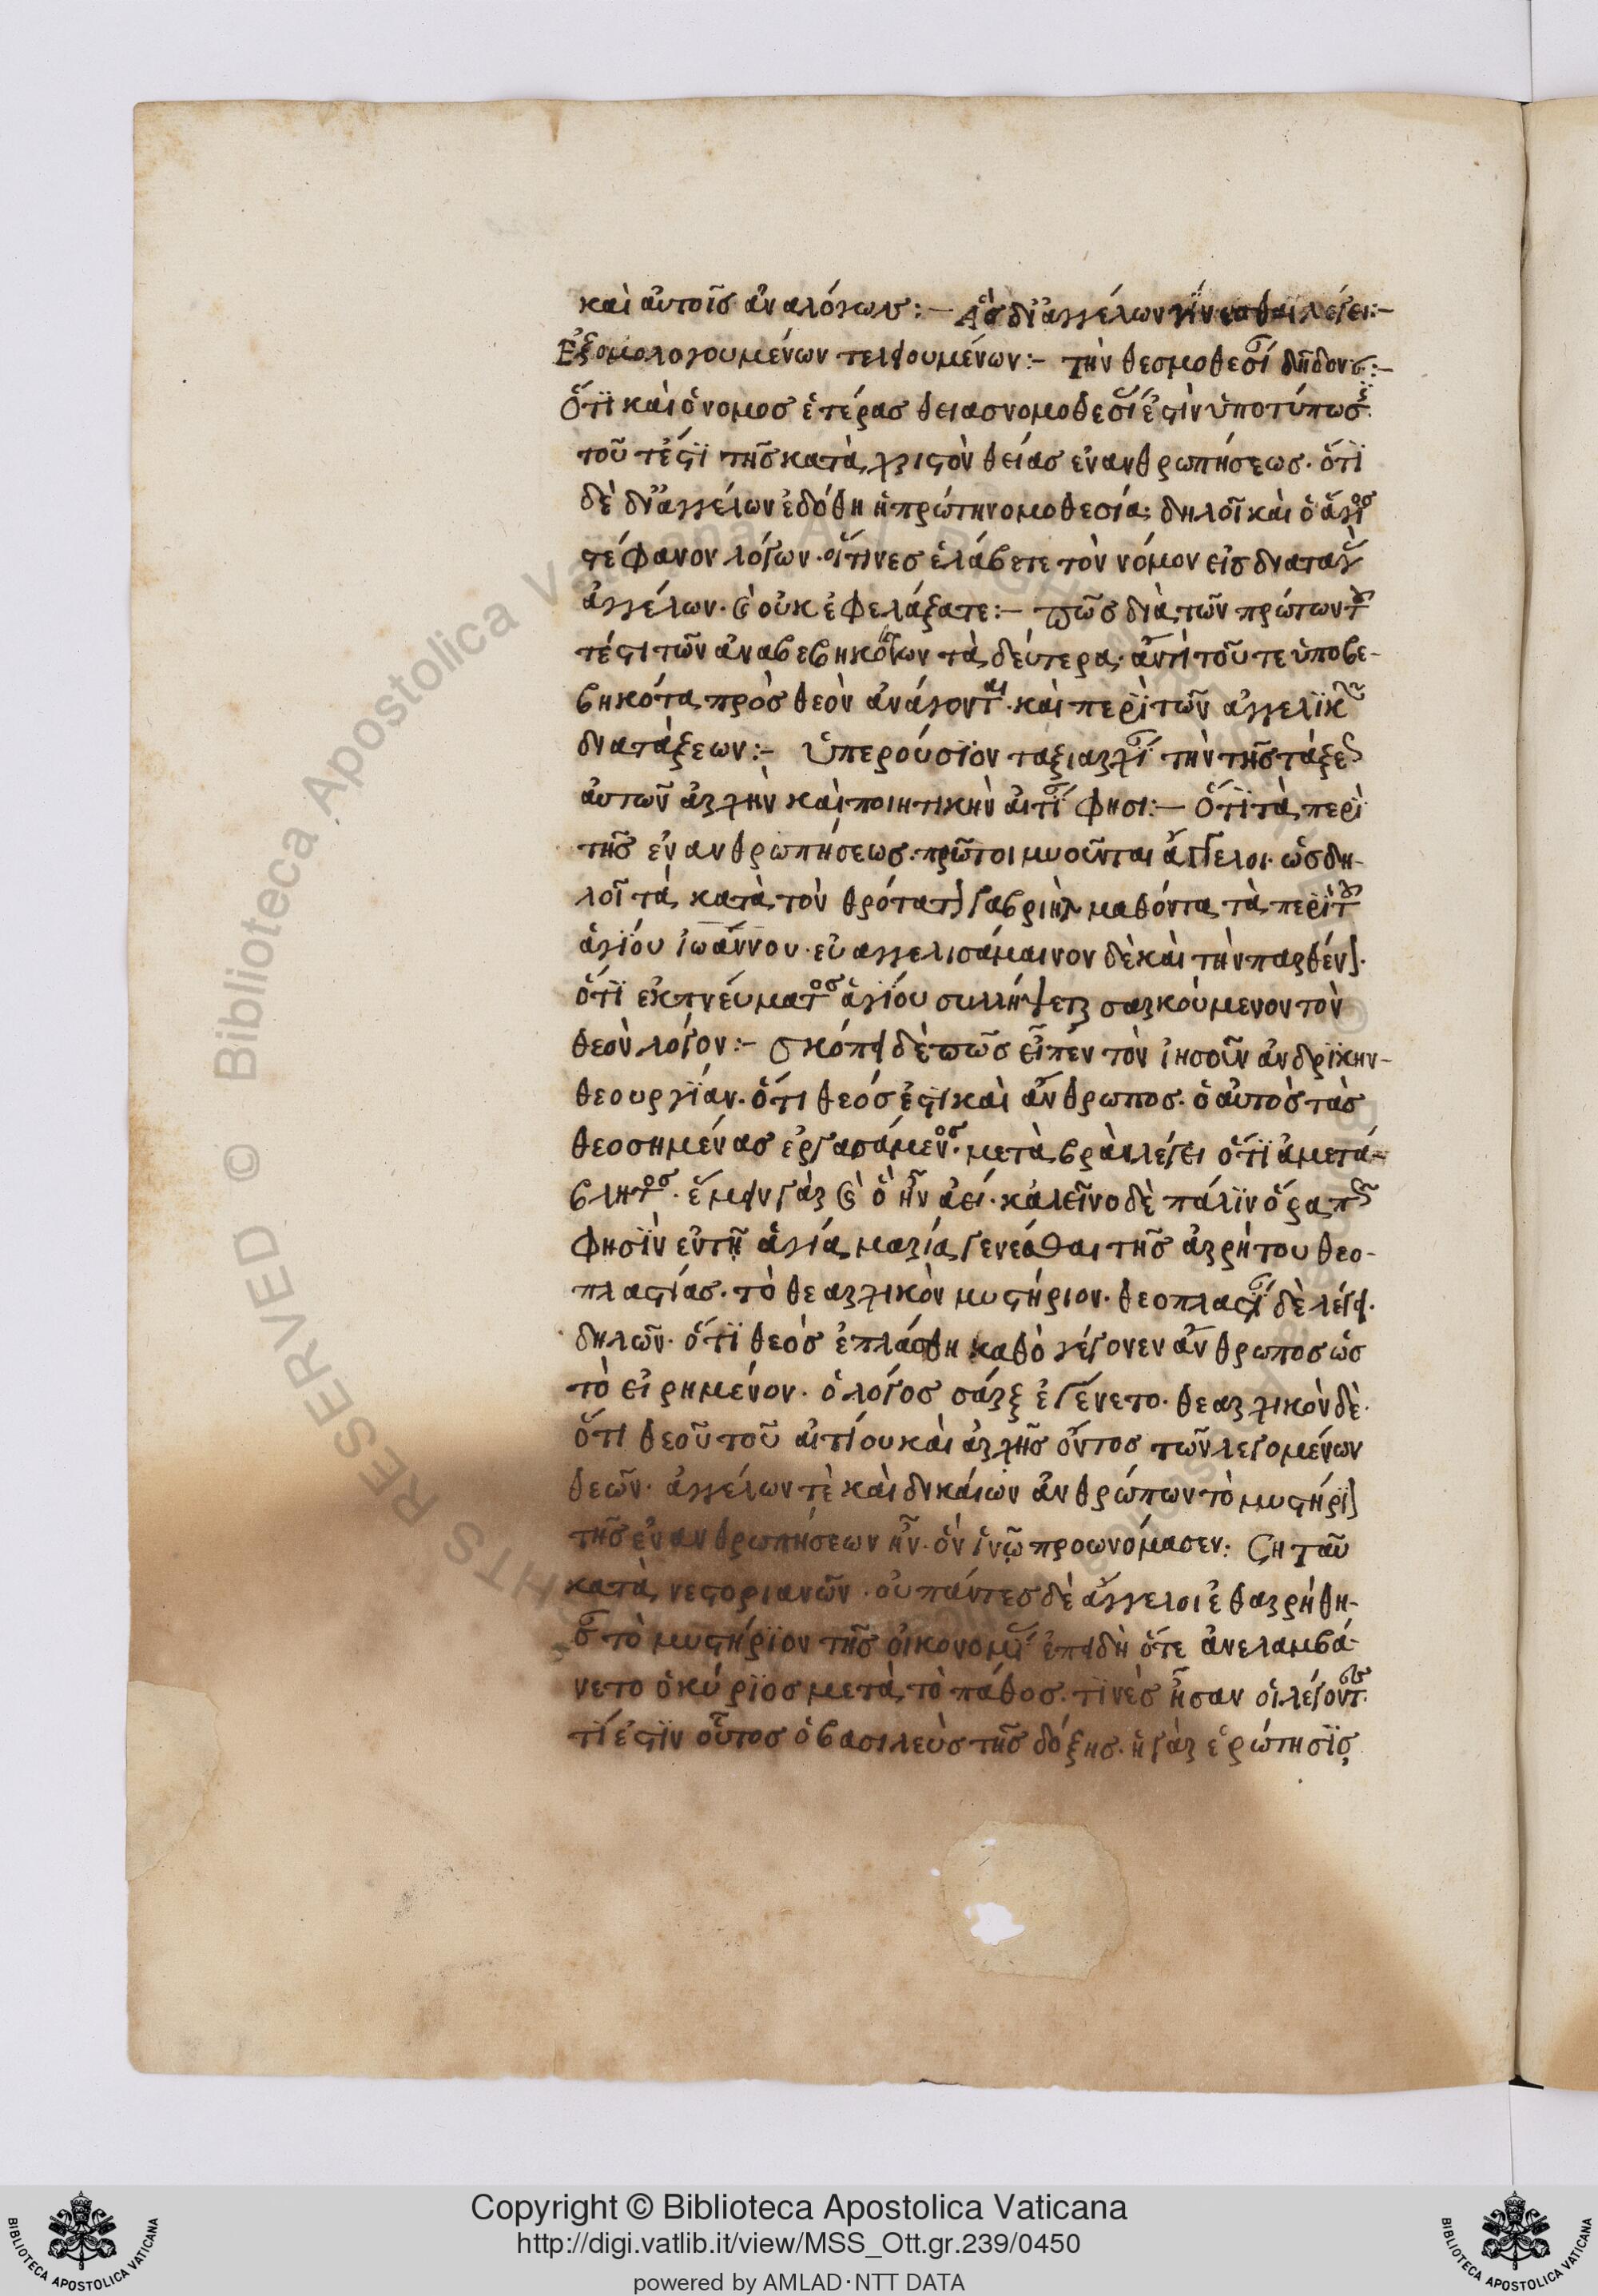 καὶ αὐτοῖς ἀναλόγως:— Ἃς δι' ἀγγέλων γίνεσθαι λέγει:—
Ἐξομολογουμένων τελουμένων:— τὴν θεσμοθεσί
Ὅτι καὶ ὁ νόμος ἑτέρας θείας νομοθεσί ἐστὶν ὑποτύπωσ
τοῦ τέστι τῆς κατὰ χριστὸν θείας ἐνανθρωπήσεως. ὅτι
δὲ δι' ἀγγέλων ἐδόθη ἡ πρώτη νομοθεσία; δηλοῖ καὶ ὁ ἅγιος
στέφανον λόγων. οἵτινες ἐλάβετε τὸν νόμον εἰς διαταγ
ἀγγέλων. καὶ οὐκ ἐφελάξατε:— πῶς διὰ τῶν πρώτων τ
τέστι τῶν ἀναβεβηκότων τὰ δεύτερα. ἀντὶ τοῦ τε ὑποβε-
βηκότα πρὸς θεὸν ἀνάγονται. καὶ περὶ τῶν ἀγγελϊκῶν
διατάξεων:— Ὑπερούσϊον ταξιαρχί τὴν τῆς τάξε
αὐτῶν ἀρχὴν καὶ ποιητικὴν αἰτί φησι:— Ὅτι τὰ περὶ
τῆς ἐνανθρωπήσεως. πρῶτοι μυοῦνται ἄγγελοι. ὡς δη-
λοῖ τὰ κατὰ τὸν θρότατον γαβριὴλ μαθόντα τὰ περὶ τ
ἁγίου ἰωάννου. εὐαγγελισάμαινον δὲ καὶ τὴν παρθέν.
ὅτι ἐκ πνεύματος ἁγίου συλλήψεται σαρκούμενον τὸν
θεὸν λόγον:— σκόπει δὲ πῶς εἶπεν τὸν ἰησοῦν ἀνδρϊκην-
θεουργίαν. ὅτι θεός ἐστι καὶ ἄνθρωπος. ὁ αὐτὸς τὰς
θεοσημένας ἐργασάμενος. μετὰ βρὰν λέγει ὅτι ἀμετά-
βλητος. ἔμεινε γὰρ καὶ ὃ ἦν ἀεί. κἀκεῖνο δὲ πάλϊν ὅρα π
φησὶν ἐν τῇ ἁγία μαρία γενέσθαι τῆς ἀρρήτου θεο-
πλαστίας. τὸ θεαρχικὸν μυστήριον. θεοπλαστί δὲ λέγει.
δηλῶν. ὅτι θεὸς ἐπλάσθη καθὸ γέγονεν ἄνθρωπος ὡς
τὸ εἰρημένον. ὁ λόγος σάρξ ἐγένετο. θεαρχικὸν δὲ.
ὅτι θεοῦ τοῦ αἰτίου καὶ ἀρχῆς ὄντος τῶν λεγομένων
θεῶν. ἀγγέλων τὲ καὶ δικαίων ἀνθρώπων τὸ μυστήρι
τῆς ἐνανθρωπήσεων ἦν. ὃν ἰησοῦ προωνόμασεν: Ση ταῦ
κατὰ νεστοριανῶν. οὐ πάντες δὲ ἄγγελοι ἐθαρρήθη-
σ τὸ μυστήρϊον τῆς οἰκονομί ἐπειδὴ ὅτε ἀνελαμβά-
νετο ὁ κύρϊος μετὰ τὸ πάθος. τινὲς ἦσαν οἱ λέγοντες.
τί ἐστϊν οὗτος ὁ βασιλεὺς τῆς δόξης. ἡ γὰρ ἐρώτησϊς
Biblioteca Apostolica Vaticana
Copyright © Biblioteca Apostolica Vaticana
http://digi.vatlib.it/view/MSS_Ott.gr.239/0450
powered by AMLAD·NTT DATA
BIBLIOTECA APOSTOLICA VATICANA
BIBLIOTECA APOSTOLICA VATICANA